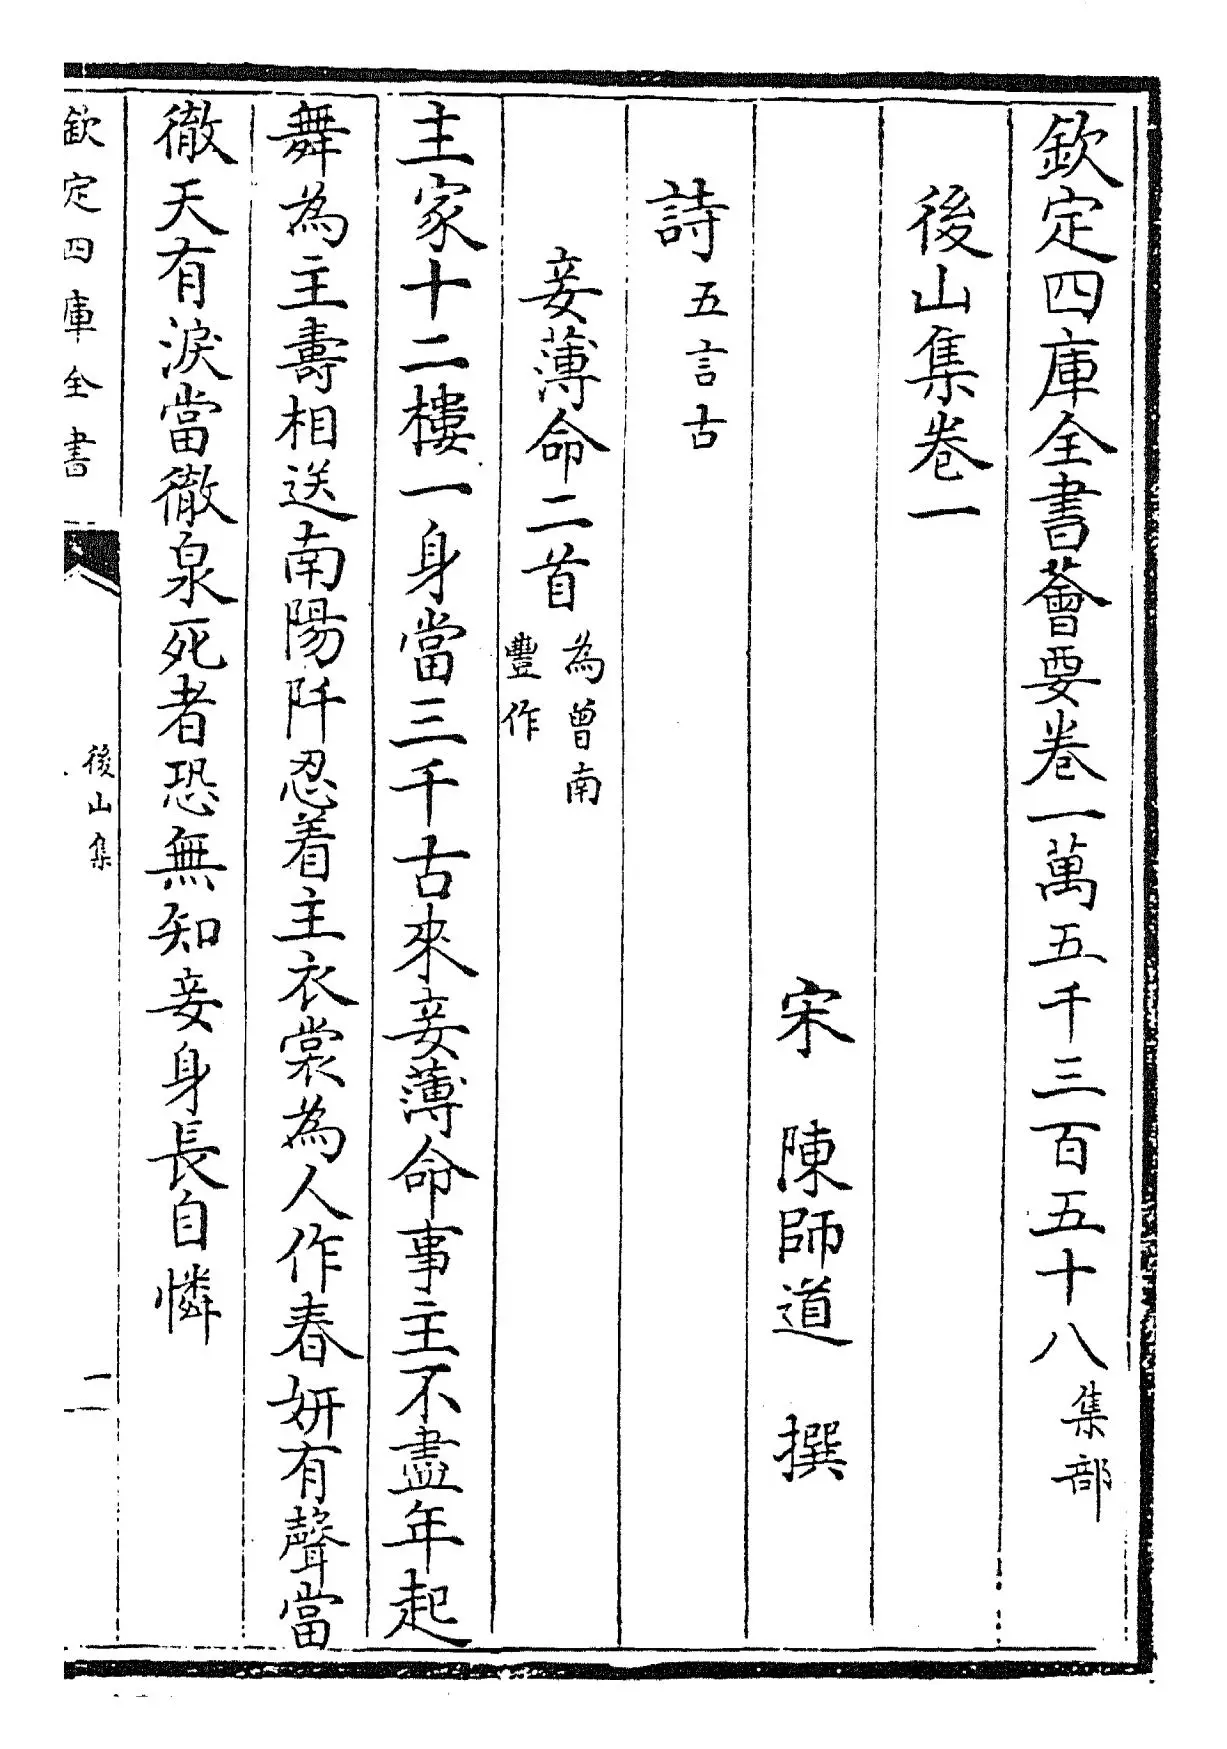 欽定四庫全書薈要卷一萬五千三百五十八 集部
後山集卷一
宋 陳師道 撰
詩 五言古
妾薄命二首 為曾南豐作
主家十二樓一身當三千古來妾薄命事主不盡年起
舞為主壽相送南陽阡忍着主衣裳為人作春妍有聲當
徹天有淚當徹泉死者恐無知妾身長自憐
欽定四庫全書
後山集
一